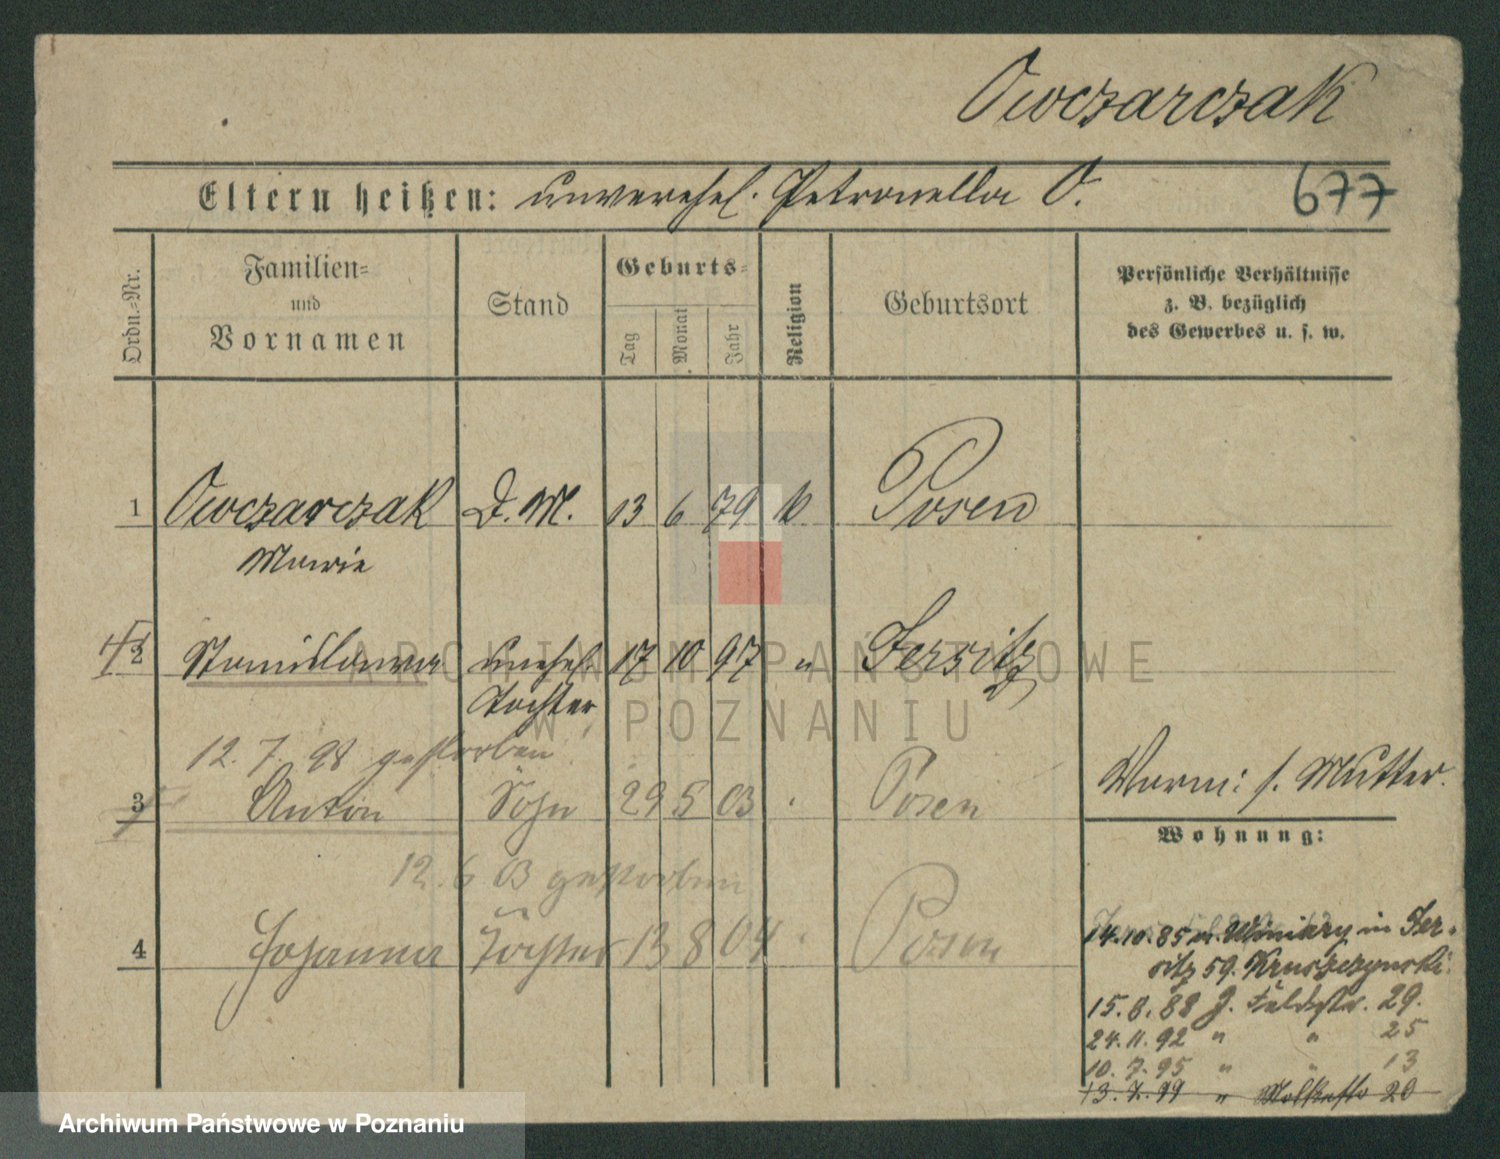 Owczarczak
Eltern heißen: unverehel. Petronella O.
677
Ordn.-Nr.
Familien-
und
Vornamen
Stand
Geburts-
Tag
Monat
Jahr
Religion
Geburtsort
Persönliche Verhältnisse
z. B. bezüglich
des Gewerbes u. s. w.
1 Owczarczak D. M. 13 6 79 k Posen
Marie
2 Stanislawa unehel. 17 10 97 " Jersitz
Tochter
12. 7. 98 gestorben
3 Anton Sohn 29 5 03 Posen
Vorm: s. Mutter.
Wohnung:
12. 6 03 gestorben
4 Johanna Tochter 13 8 04 Posen
14.10.85 Winiary in Jer-
sitz 59. Kruszczynski
15.8.88 J. Feldstr. 29.
24.11.92 " " 25
10.7.95 " " 13
13.7.99 " 20
ARCHIWUM PAŃSTWOWE
W POZNANIU
Archiwum Państwowe w Poznaniu